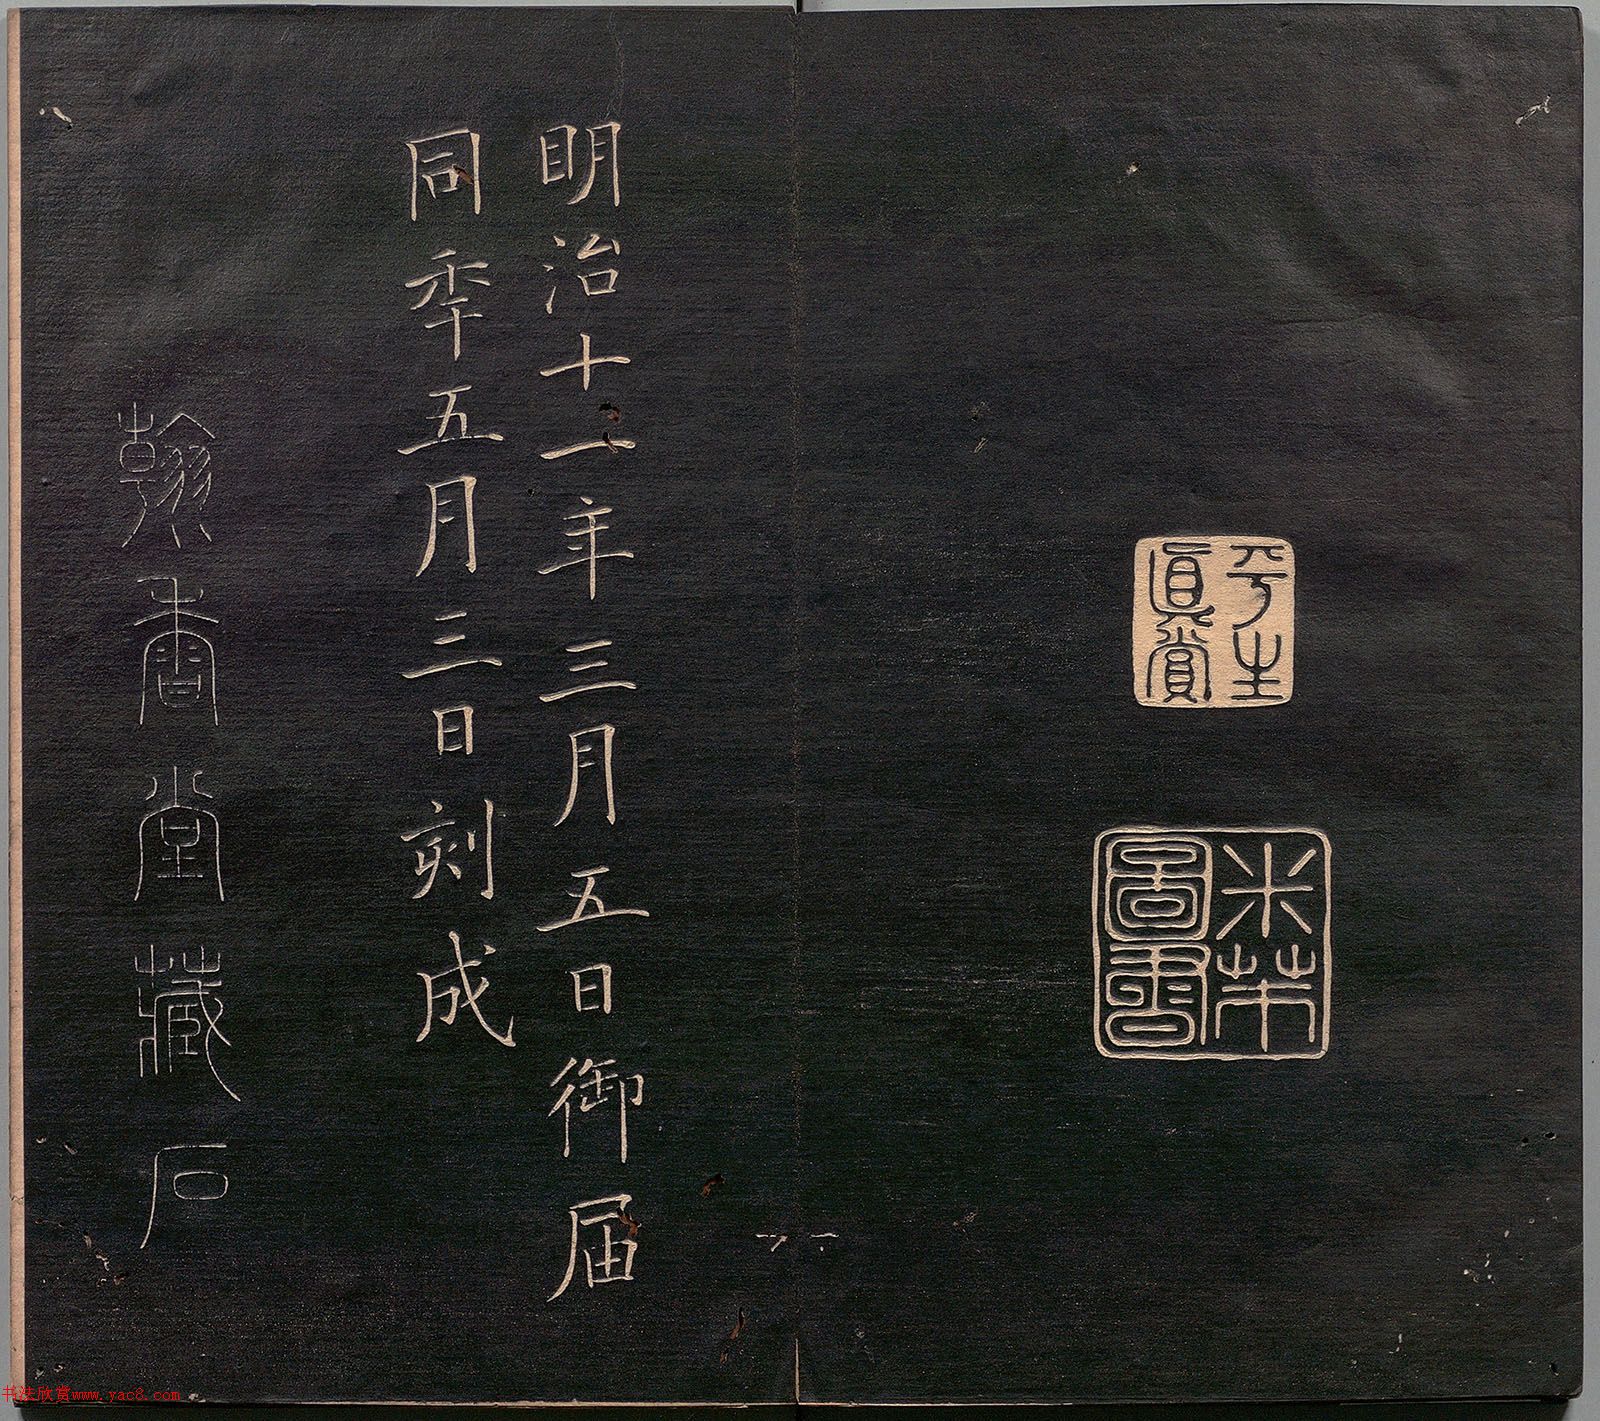 平生
真賞
米芾
啚書
明治十一年三月五日御届
同年五月三日刻成
翰香堂藏石
书法欣赏www.yac8.com